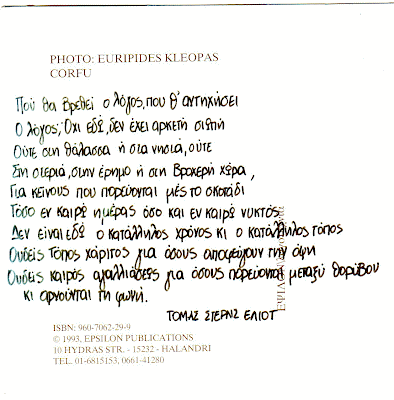 PHOTO: EURIPIDES KLEOPAS
CORFU
Πού θα βρεθεί ο λόγος, που θ' αντηχήσει
Ο λόγος; Όχι εδώ, δεν έχει αρκετή σιωπή
Ούτε στη θάλασσα ή στα νησιά, ούτε
Στη στεριά, στην έρημο ή στη βροχερή χώρα,
Για κείνους που πορεύονται μές το σκοτάδι
Τόσο εν καιρώ ημέρας όσο και εν καιρώ νυκτός
Δεν είναι εδώ ο κατάλληλος χρόνος κι ο κατάλληλος τόπος
Ουδείς τόπος χάριτος για όσους αποφεύγουν την όψη
Ουδείς καιρός αγαλλιάσεως για όσους πορεύονται μεταξύ θορύβου
κι αρνούνται τη φωνή.
ΤΟΜΑΣ ΣΤΕΡΝΣ ΕΛΙΟΤ
ISBN: 960-7062-29-9
© 1993, EPSILON PUBLICATIONS
10 HYDRAS STR. - 15232 - HALANDRI
TEL. 01-6815153, 0661-41280